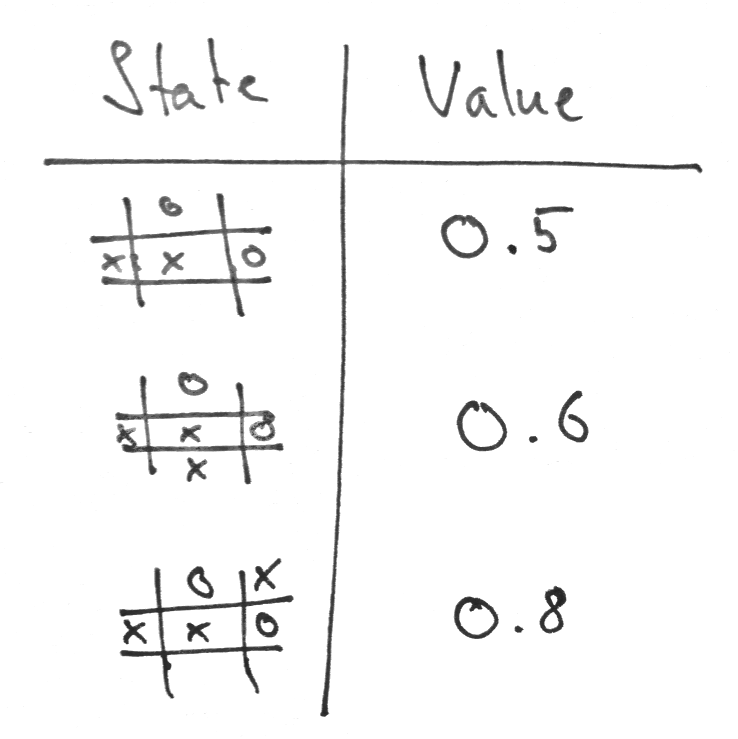 State Value
O
X X O
0.5
O
X X O
X
0.6
O X
X X O
0.8